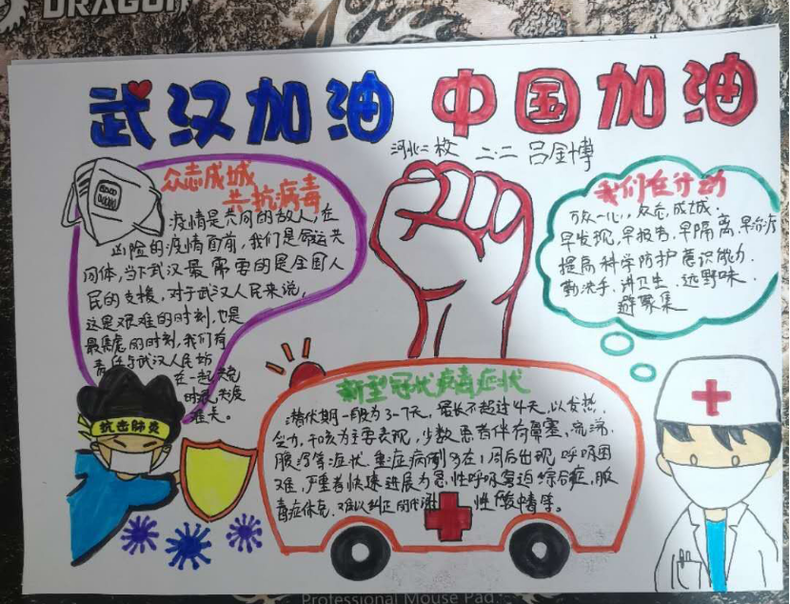 DRAGON
武汉加油 中国加油
河北二校 二.二 吕金博
众志成城
共抗病毒
疫情是共同的敌人,在
凶险的疫情面前,我们是命运共
同体,当下武汉最需要的是全国人
民的支援,对于武汉人民来说,
这是艰难的时刻,也是
最焦虑的时刻,我们有
责任与武汉人民站
在一起,共克
时艰,共度
难关。
我们在行动
万众一心,众志成城。
早发现,早报告,早隔离,早治疗
提高科学防护意识能力
勤洗手、讲卫生、远野味、
避聚集
新型冠状病毒症状
潜伏期一般为3-7天,最长不超过14天,以发热,
乏力,干咳为主要表现,少数患者伴有鼻塞、流涕、
腹泻等症状.重症病例多在1周后出现呼吸困
难,严重者快速进展为急性呼吸窘迫综合症,脓
毒症休克,难以纠正的代谢 性酸中毒等。
抗击肺炎
Professional Mouse Pad